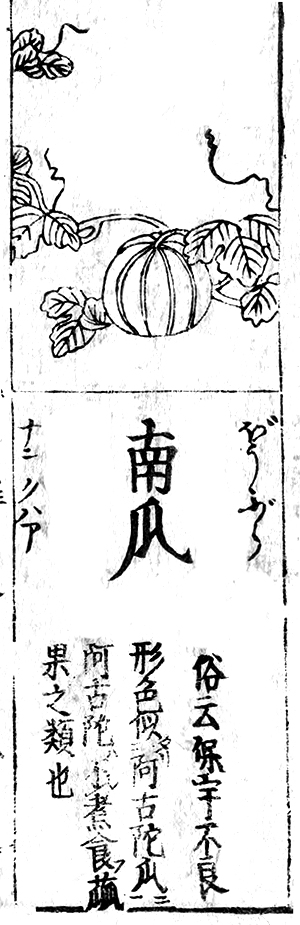 ぼうぶら
南瓜
ナンノハア
俗云保宇不良
形色似阿古陀瓜
阿古陀　煮食蓏
果之類也